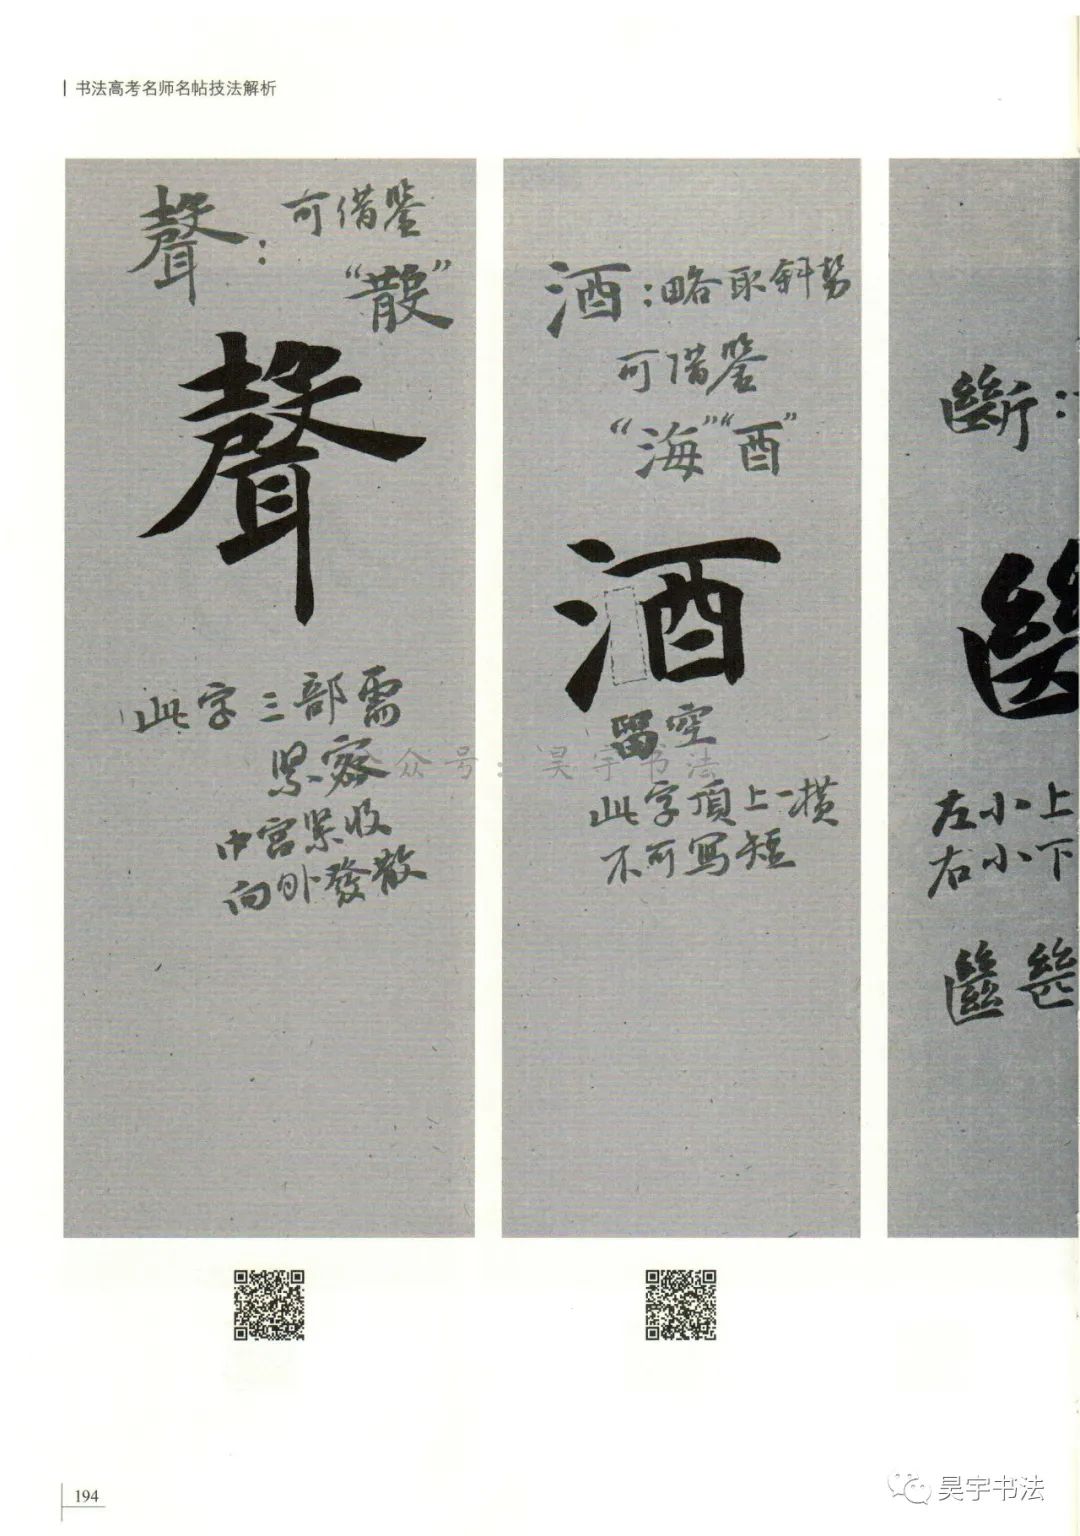 书法高考名师名帖技法解析
聲：可借鉴
“散”
聲
此字三部需
紧密
中宫紧收
向外發散
酒：略取斜势
可借鉴
“海”“酉”
酒
留空
此字頂上一横
不可寫短
斷：
左小上
右小下
公众号：昊宇书法
194
昊宇书法